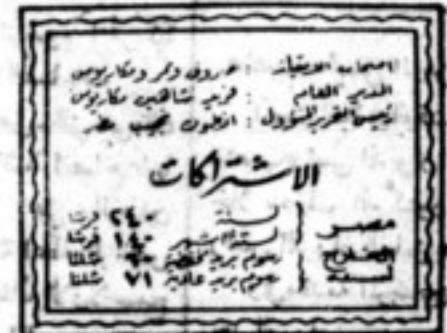 اصحاب الامتياز : صروف ونمر ومكاريوس
المدير العام : فريد شاهين مكاريوس
رئيس التحرير المسؤول : انطون نجيب مطر
الاشتراكات
مصر { لسنة ٢٤٠ قرشا
لستة اشهر ١٤٠ قرشا
الخارج لسنة { رسوم بريد ٦٠ شلنا
رسوم بريد عادية ٧١ شلنا